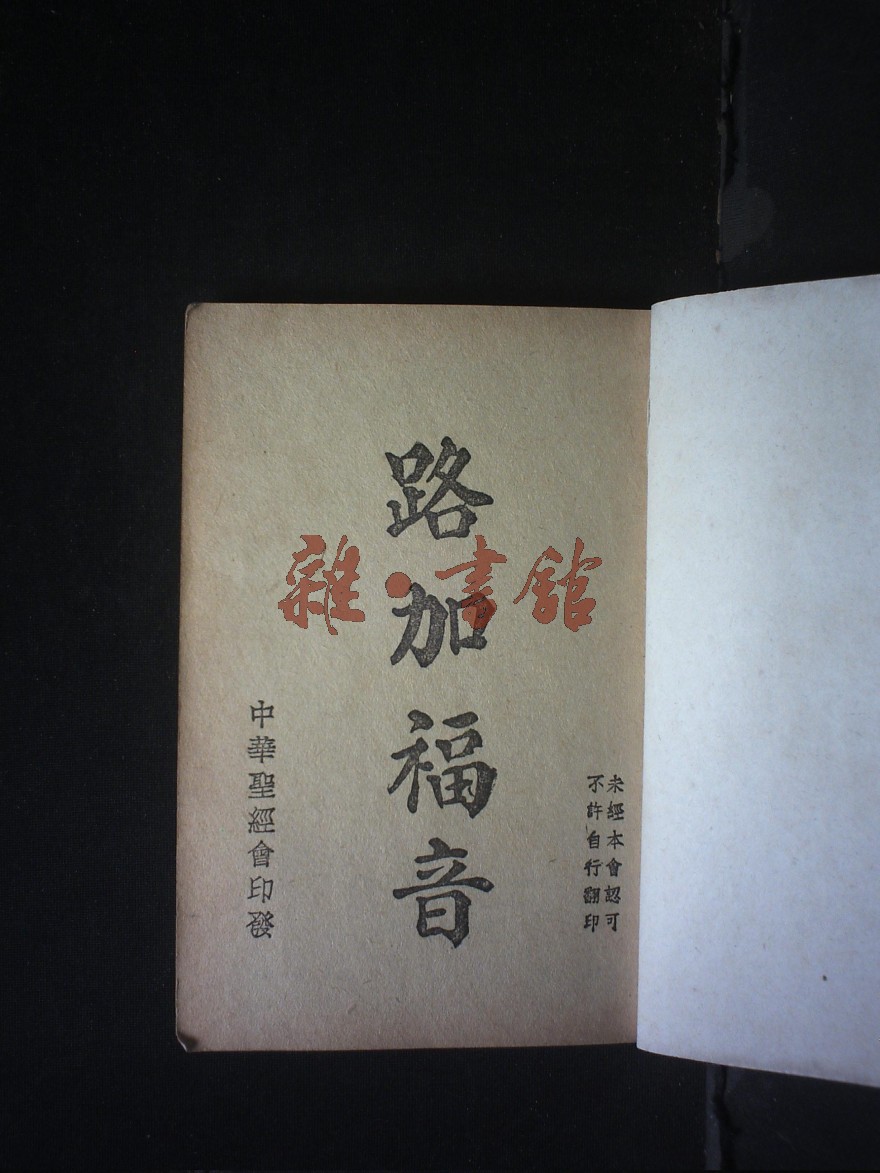 未經本會認可
不許自行翻印
路加福音
中華聖經會印發
雜·書館